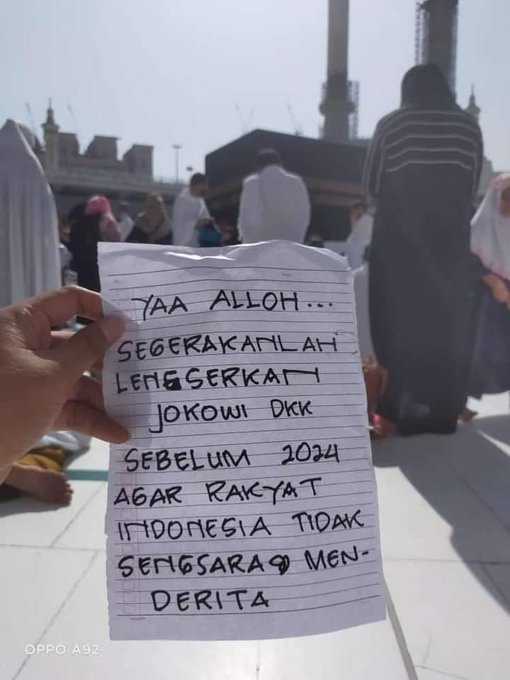 YAA ALLOH...
SEGERAKANLAH
LENGSERKAN
JOKOWI DKK
SEBELUM 2024
AGAR RAKYAT
INDONESIA TIDAK
SENGSARA MEN-
DERITA
OPPO A92